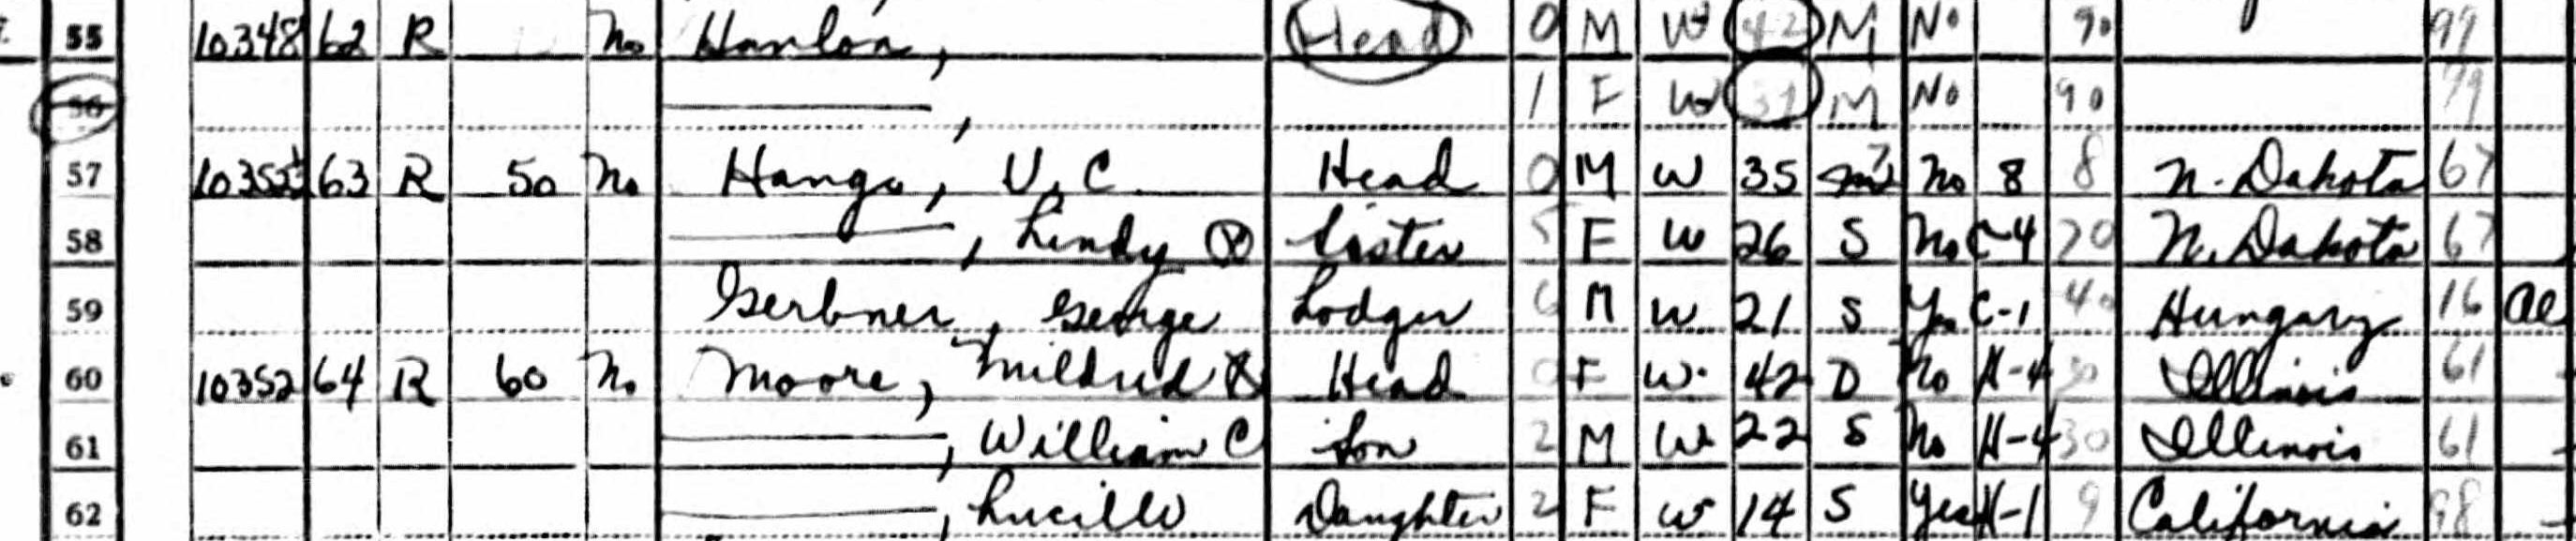 55 10348 62 R No Hanlon, Head 0 M W 42 M No 90 99
56 ———, 1 F W 31 M No 90 99
57 63 R 50 No Hango, V. C Head 0 M W 35 No 8 8 N. Dakota 67
58 ———, Lindy Ⓧ Sister 5 F W 26 S No C-4 20 N. Dakota 67
59 Gerbner, George Lodger 6 M W 21 S Yes C-1 40 Hungary 16 al
60 10352 64 R 60 No Moore, Mildred Head 0 F W. 42 D No H-4 30 Illinois 61
61 ———, William C Son 2 M W 22 S No H-4 30 Illinois 61
62 ———, Lucille Daughter 2 F W 14 S Yes H-1 9 California 98